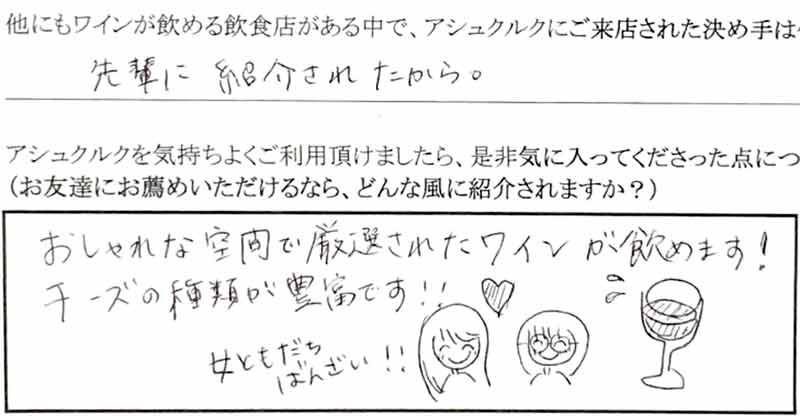 他にもワインが飲める飲食店がある中で、アシュクルクにご来店された決め手は
先輩に紹介されたから。
アシュクルクを気持ちよくご利用頂けましたら、是非気に入ってくださった点につ
（お友達にお薦めいただけるなら、どんな風に紹介されますか？）
おしゃれな空間で厳選されたワインが飲めます！
チーズの種類が豊富です！！
女ともだち
ばんざい！！